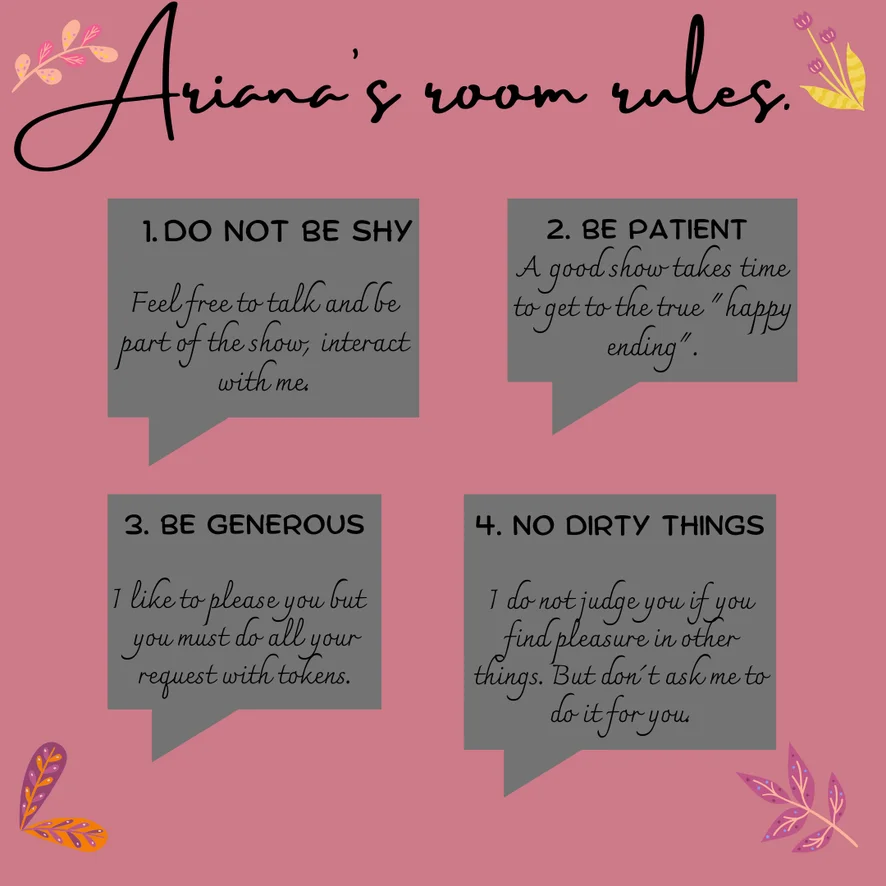 Ariana's room rules.
1. DO NOT BE SHY
Feel free to talk and be
part of the show, interact
with me.
2. BE PATIENT
A good show takes time
to get to the true "happy
ending".
3. BE GENEROUS
I like to please you but
you must do all your
request with tokens.
4. NO DIRTY THINGS
I do not judge you if you
find pleasure in other
things. But don´t ask me to
do it for you.